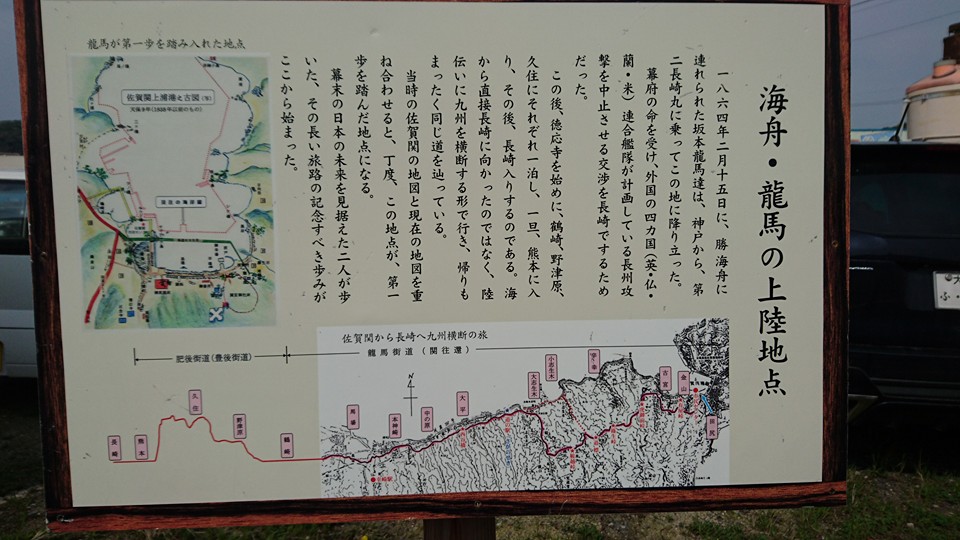 海舟・龍馬の上陸地点
一八六四年二月十五日に、勝海舟に
連れられた坂本龍馬達は、神戸から、第
二長崎丸に乗ってこの地に降り立った。
幕府の命を受け、外国の四カ国(英・仏・
蘭・米)連合艦隊が計画している長州攻
撃を中止させる交渉を長崎でするため
だった。
この後、徳応寺を始めに、鶴崎、野津原、
久住にそれぞれ一泊し、一旦、熊本に入
り、その後、長崎入りするのである。海
から直接長崎に向かったのではなく、陸
伝いに九州を横断する形で行き、帰りも
まったく同じ道を辿っている。
当時の佐賀関の地図と現在の地図を重
ね合わせると、丁度、この地点が、第一
歩を踏んだ地点になる。
幕末の日本の未来を見据えた二人が歩
いた、その長い旅路の記念すべき歩みが
ここから始まった。
龍馬が第一歩を踏み入れた地点
佐賀関上浦港と古図
佐賀関から長崎へ九州横断の旅
肥後街道(豊後街道)
龍馬街道(関往還)
長崎
熊本
久住
野津原
鶴崎
馬場
本神崎
中の原
大平
大志生木
小志生木
古宮
金山